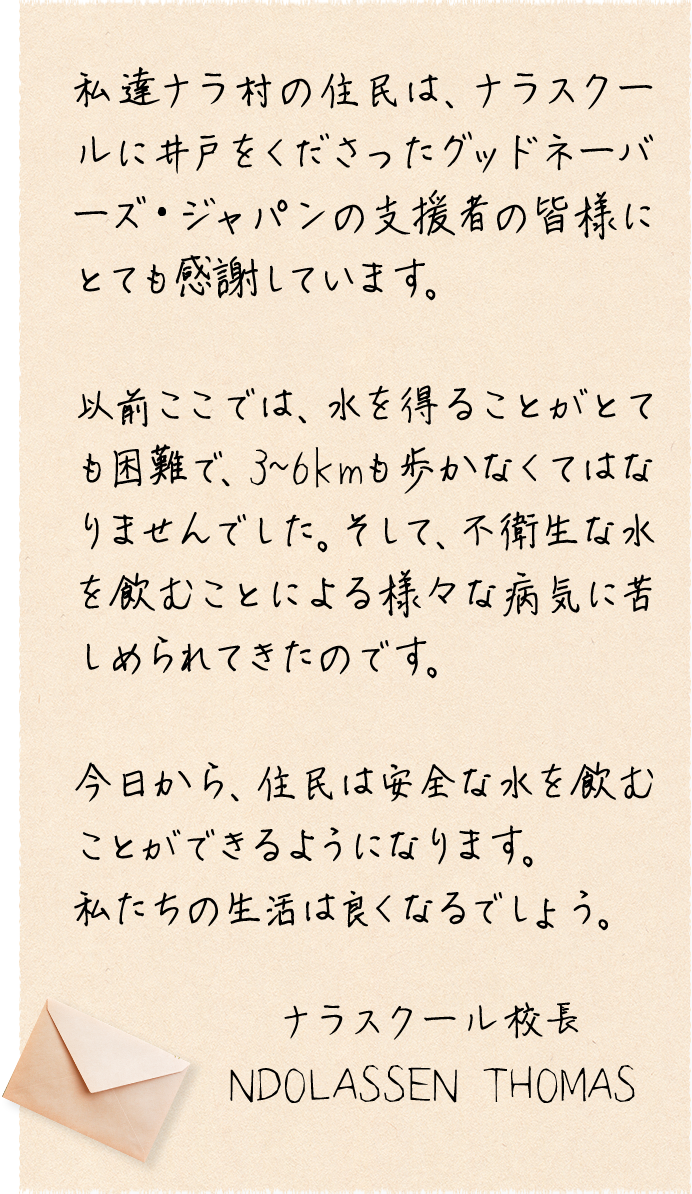 私達ナラ村の住民は、ナラスクー
ルに井戸をくださったグッドネーバ
ーズ・ジャパンの支援者の皆様に
とても感謝しています。
以前ここでは、水を得ることがとて
も困難で、3~6kmも歩かなくてはな
りませんでした。そして、不衛生な水
を飲むことによる様々な病気に苦
しめられてきたのです。
今日から、住民は安全な水を飲む
ことができるようになります。
私たちの生活は良くなるでしょう。
ナラスクール校長
NDOLASSEN THOMAS